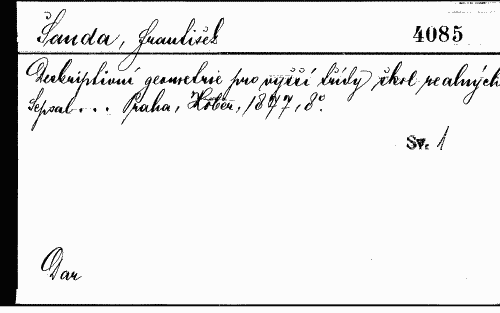 Šanda, František 4085
Deskriptivní geometrie pro vyšší třídy škol realných
Sepsal... Praha, Kober, 1877, 8°.
Sv. 1
Dar